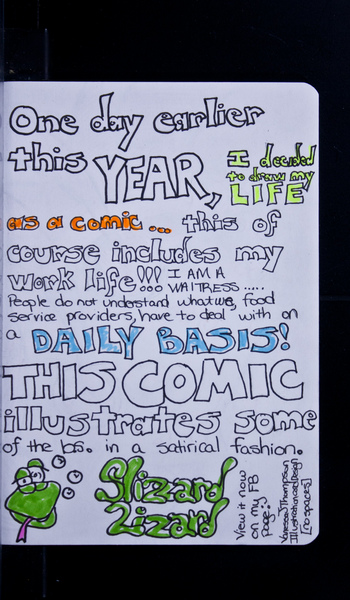 One day earlier
this YEAR, I decided
to draw my
LIFE
as a comic... this of
course includes my
work life!!! I AM A
WAITRESS.....
People do not understand what we, food
service providers, have to deal with on
a DAILY BASIS!
THIS COMIC
illustrates some
of the b.s. in a satirical fashion.
Slizzard
Lizard
View it now
on my FB
page :)
[no spaces]